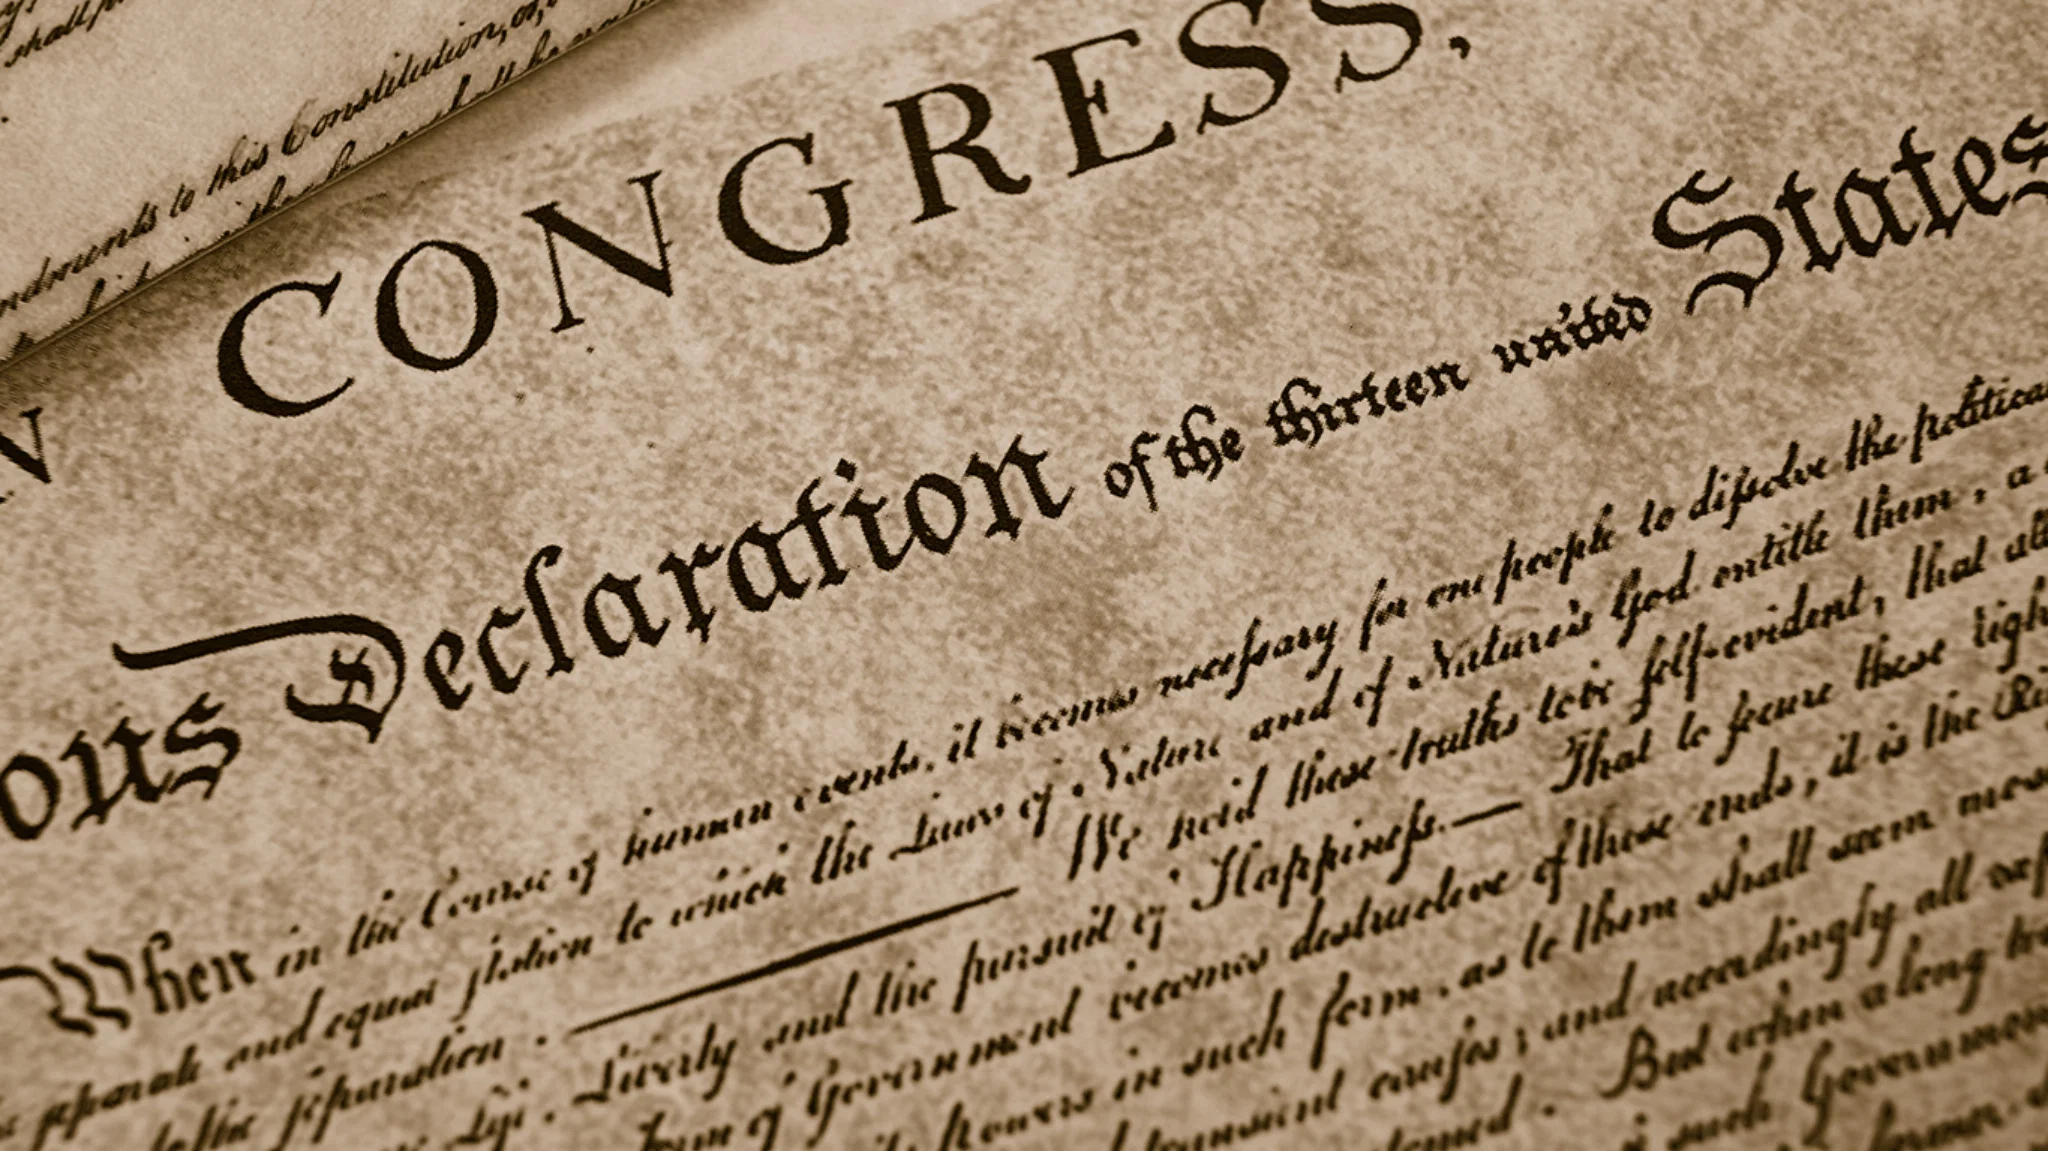 shall
ndments to this Constitution, or,
N CONGRESS,
ous Declaration of the thirteen united States
When in the Course of human events, it becomes necessary for one people to dissolve the political
separate and equal station to which the Laws of Nature and of Nature's God entitle them, a
to the separation. We hold these truths to be self-evident, that all
Life, Liberty and the pursuit of Happiness.— That to secure these righ
Form of Government becomes destructive of these ends, it is the Ri
Powers in such form, as to them shall seem mos
transient causes; and accordingly all exp
But when a long tra
such Government
former